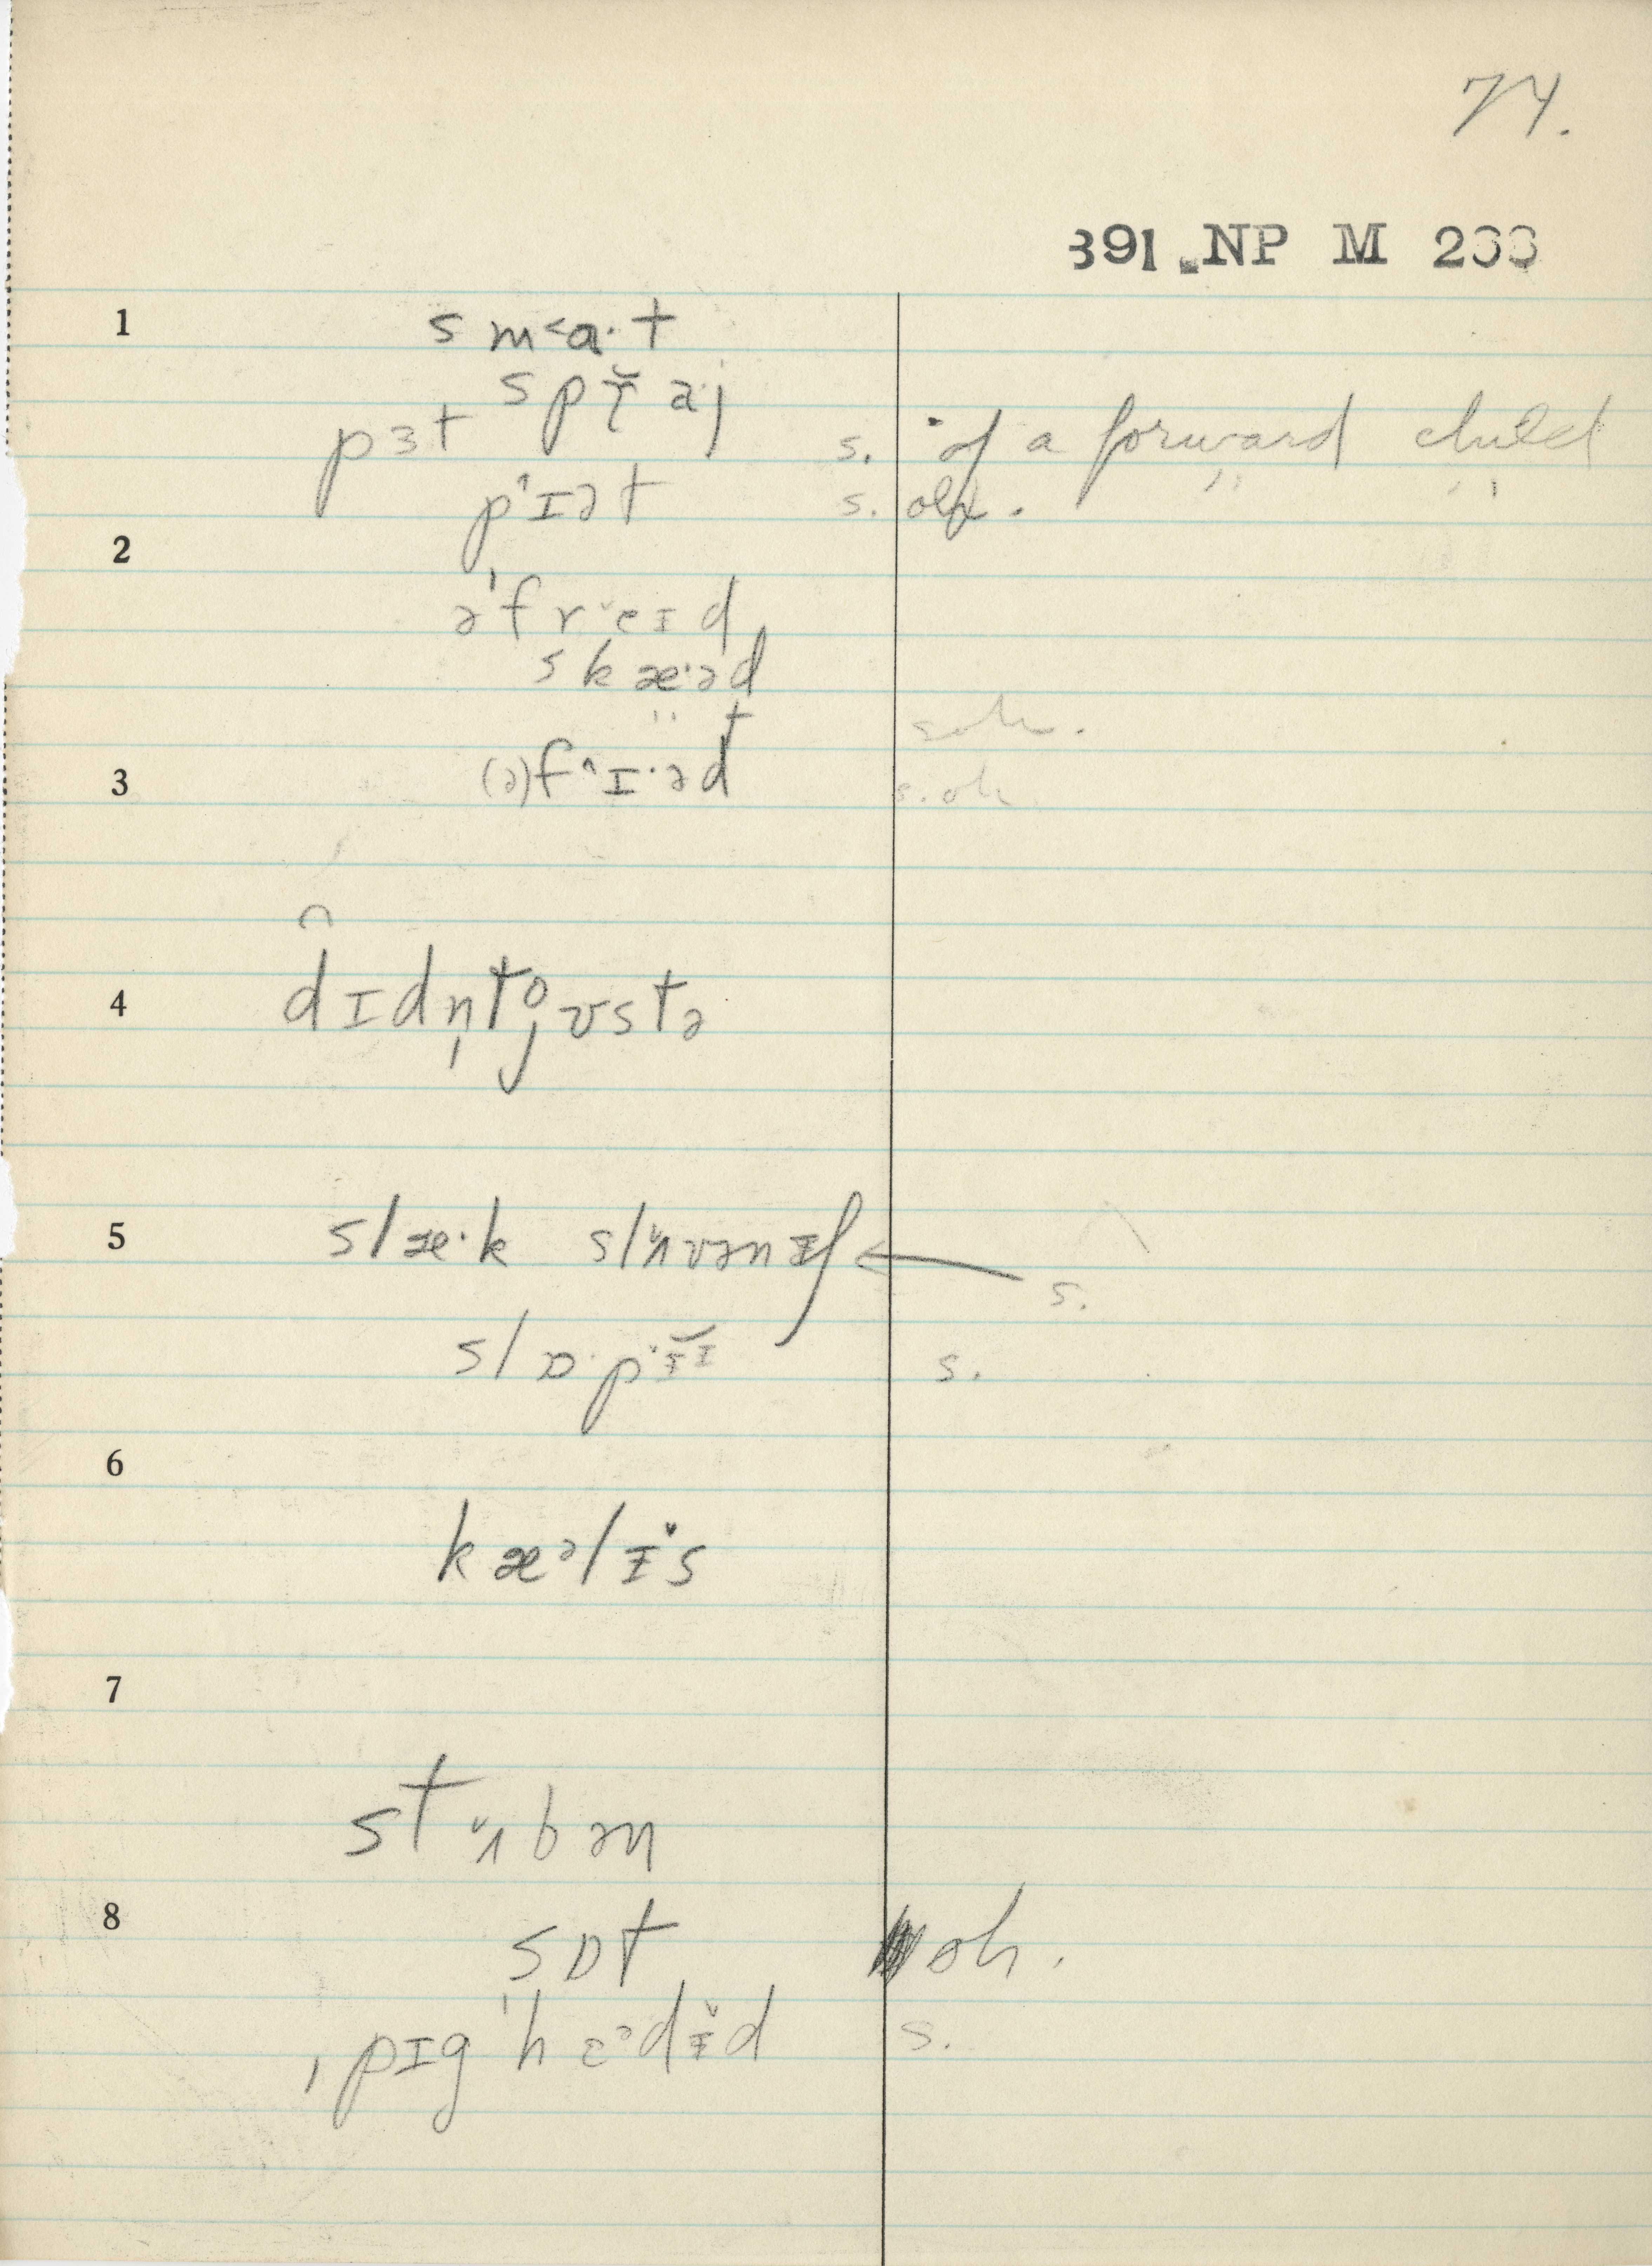 74.
391 NP M 233
1 s m˂ɑ·t
s p ɾ̆ a·j
pɜt s. of a forward child
p˄ɪət s. " "
2
ə'f r ˇeɪd
s k æ·əd
3 (ə)f˄ɪ·əd s. oh.
4 dɪdn̩tjʊstə
5 slæ·k slʌ̌vənɨ
s.
slɒ·pɨ̌ɪ s.
6
k æəlɨ̌s
7
stʌ̌bən
8
sɒt oh.
ˌpɪg'hɛədɨ̌d s.